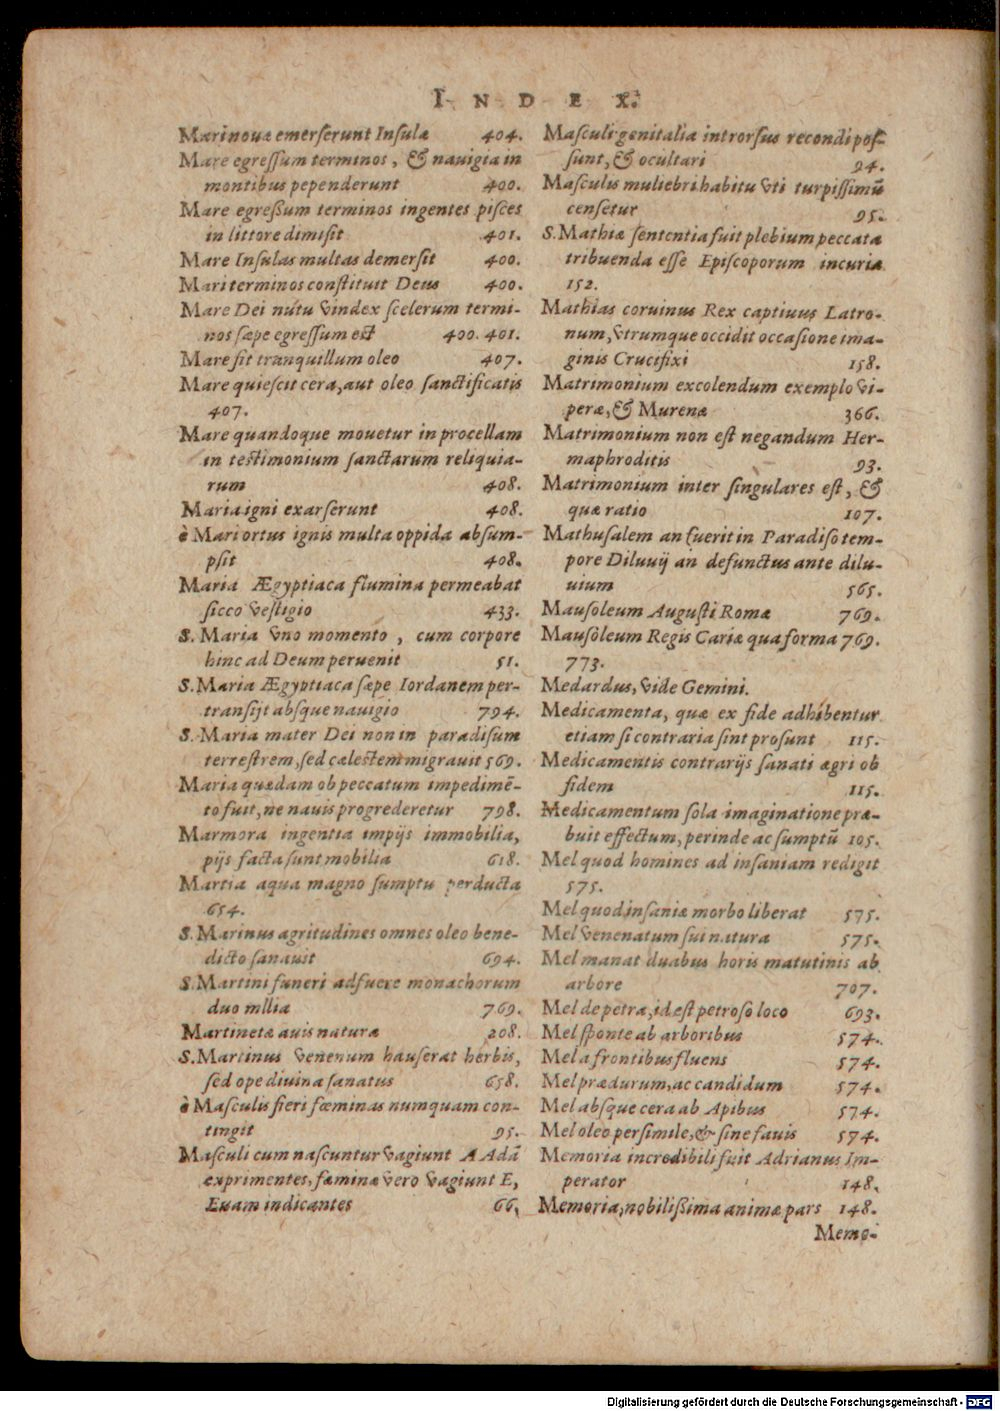 INDEX.
Mari nouæ emerſerunt Inſulæ 404.
Mare egreſſum terminos, & nauigia in
montibus pependerunt 400.
Mare egreſſum terminos ingentes piſces
in littore dimiſit 401.
Mare Inſulas multas demerſit 400.
Mari terminos conſtituit Deus 400.
Mare Dei nutu vindex ſcelerum termi-
nos ſæpe egreſſum eſt 400. 401.
Mare fit tranquillum oleo 407.
Mare quieſcit cera, aut oleo ſanctificatis
407.
Mare quandoque mouetur in procellam
in teſtimonium ſanctarum reliquia-
rum 408.
Maria igni exarſerunt 408.
è Mari ortus ignis multa oppida abſum-
pſit 408.
Maria Ægyptiaca flumina permeabat
ſicco veſtigio 433.
S. Maria vno momento, cum corpore
hinc ad Deum peruenit 51.
S. Maria Ægyptiaca ſæpe Iordanem per-
tranſijt abſque nauigio 794.
S. Maria mater Dei non in paradiſum
terreſtrem, ſed cæleſtem migrauit 569.
Maria quædam ob peccatum impedimē-
to fuit, ne nauis progrederetur 798.
Marmora ingentia impijs immobilia,
pijs facta ſunt mobilia 618.
Martia aqua magno ſumptu perducta
654.
S. Marinus ægritudines omnes oleo bene-
dicto ſanauit 694.
S. Martini funeri adfuere monachorum
duo mllia 769.
Martinetæ auis naturæ 208.
S. Martinus venenum hauſerat herbis,
ſed ope diuina ſanatus 658.
è Maſculis fieri fœminas numquam con-
tingit 95.
Maſculi cum naſcuntur vagiunt A Adā
exprimentes, fœminæ vero vagiunt E,
Euam indicantes 66.
Maſculi genitalia introrſus recondi poſ-
ſunt, & ocultari 94.
Maſculis muliebri habitu vti turpiſſimū
cenſetur 95.
S. Mathiæ ſententia fuit plebium peccata
tribuenda eſſe Epiſcoporum incuriæ
152.
Mathias coruinus Rex captiuus Latro-
num, vtrumque occidit occaſione ima-
ginis Crucifixi 158.
Matrimonium excolendum exemplo vi-
peræ, & Murenæ 366.
Matrimonium non eſt negandum Her-
maphroditis 93.
Matrimonium inter ſingulares eſt, &
quæ ratio 107.
Mathuſalem an fuerit in Paradiſo tem-
pore Diluuij an defunctus ante dilu-
uium 565.
Mauſoleum Auguſti Romæ 769.
Mauſoleum Regis Cariæ qua forma 769.
773.
Medardus, vide Gemini.
Medicamenta, quæ ex fide adhibentur
etiam ſi contraria ſint proſunt 115.
Medicamentis contrarijs ſanati ægri ob
fidem 115.
Medicamentum ſola imaginatione præ-
buit effectum, perinde ac ſumptū 105.
Mel quod homines ad inſaniam redigit
575.
Mel quod inſaniæ morbo liberat 575.
Mel venenatum ſui natura 575.
Mel manat duabus horis matutinis ab
arbore 707.
Mel de petra, id eſt petroſo loco 693.
Mel ſponte ab arboribus 574.
Mel a frontibus fluens 574.
Mel prædurum, ac candidum 574.
Mel abſque cera ab Apibus 574.
Mel oleo perſimile, & ſine fauis 574.
Memoria incredibili fuit Adrianus Im-
perator 148.
Memoria, nobiliſſima animæ pars 148.
Memo-
Digitalisierung gefördert durch die Deutsche Forschungsgemeinschaft - DFG